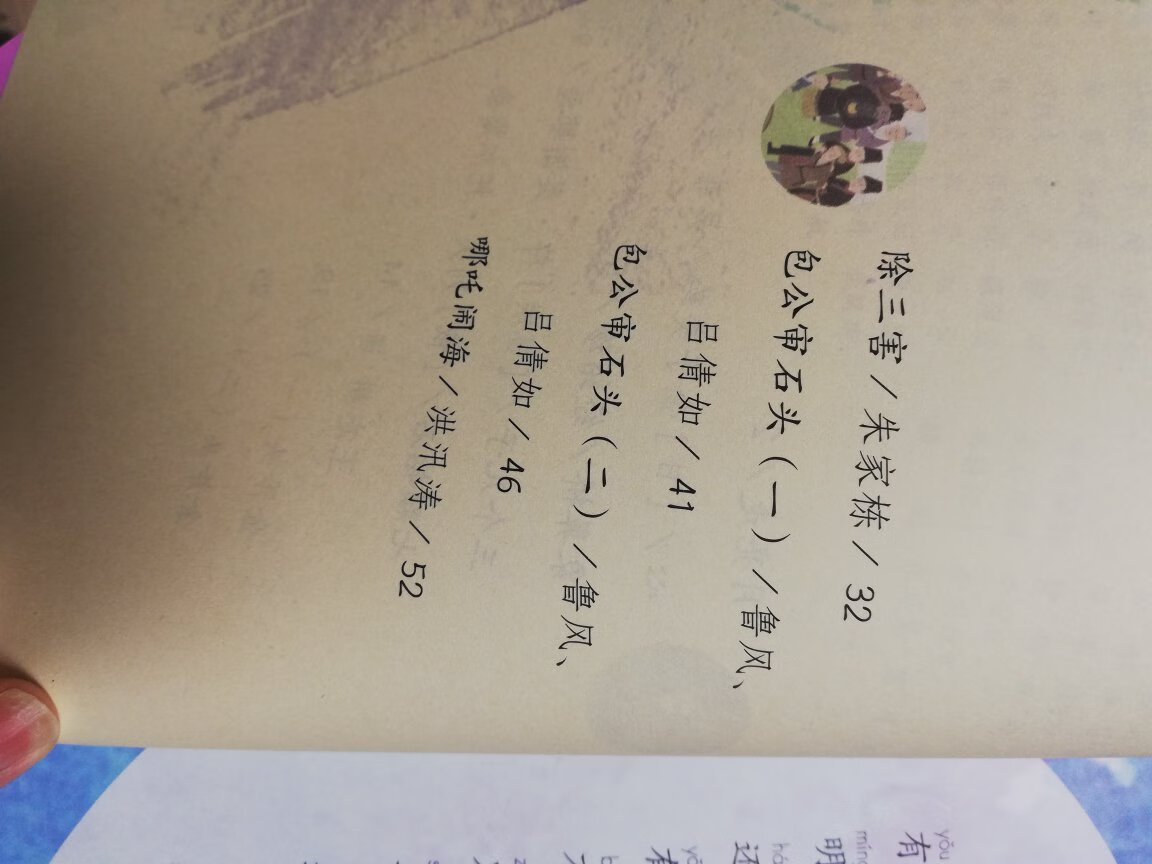 除三害/朱家栋/32
包公审石头(一)/鲁风、
吕倩如/41
包公审石头(二)/鲁风、
吕倩如/46
哪吒闹海/洪汛涛/52
yǒu
有
míng
明
还